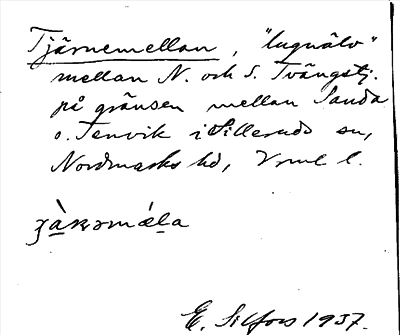 Tjärnemellan, "lugnälv"
mellan N. och S. Tvängstj.
på gränsen mellan Sanda
o. Tenvik i Silleruds sn,
Nordmarks hd, Vrml l.
E. Silfors 1937.